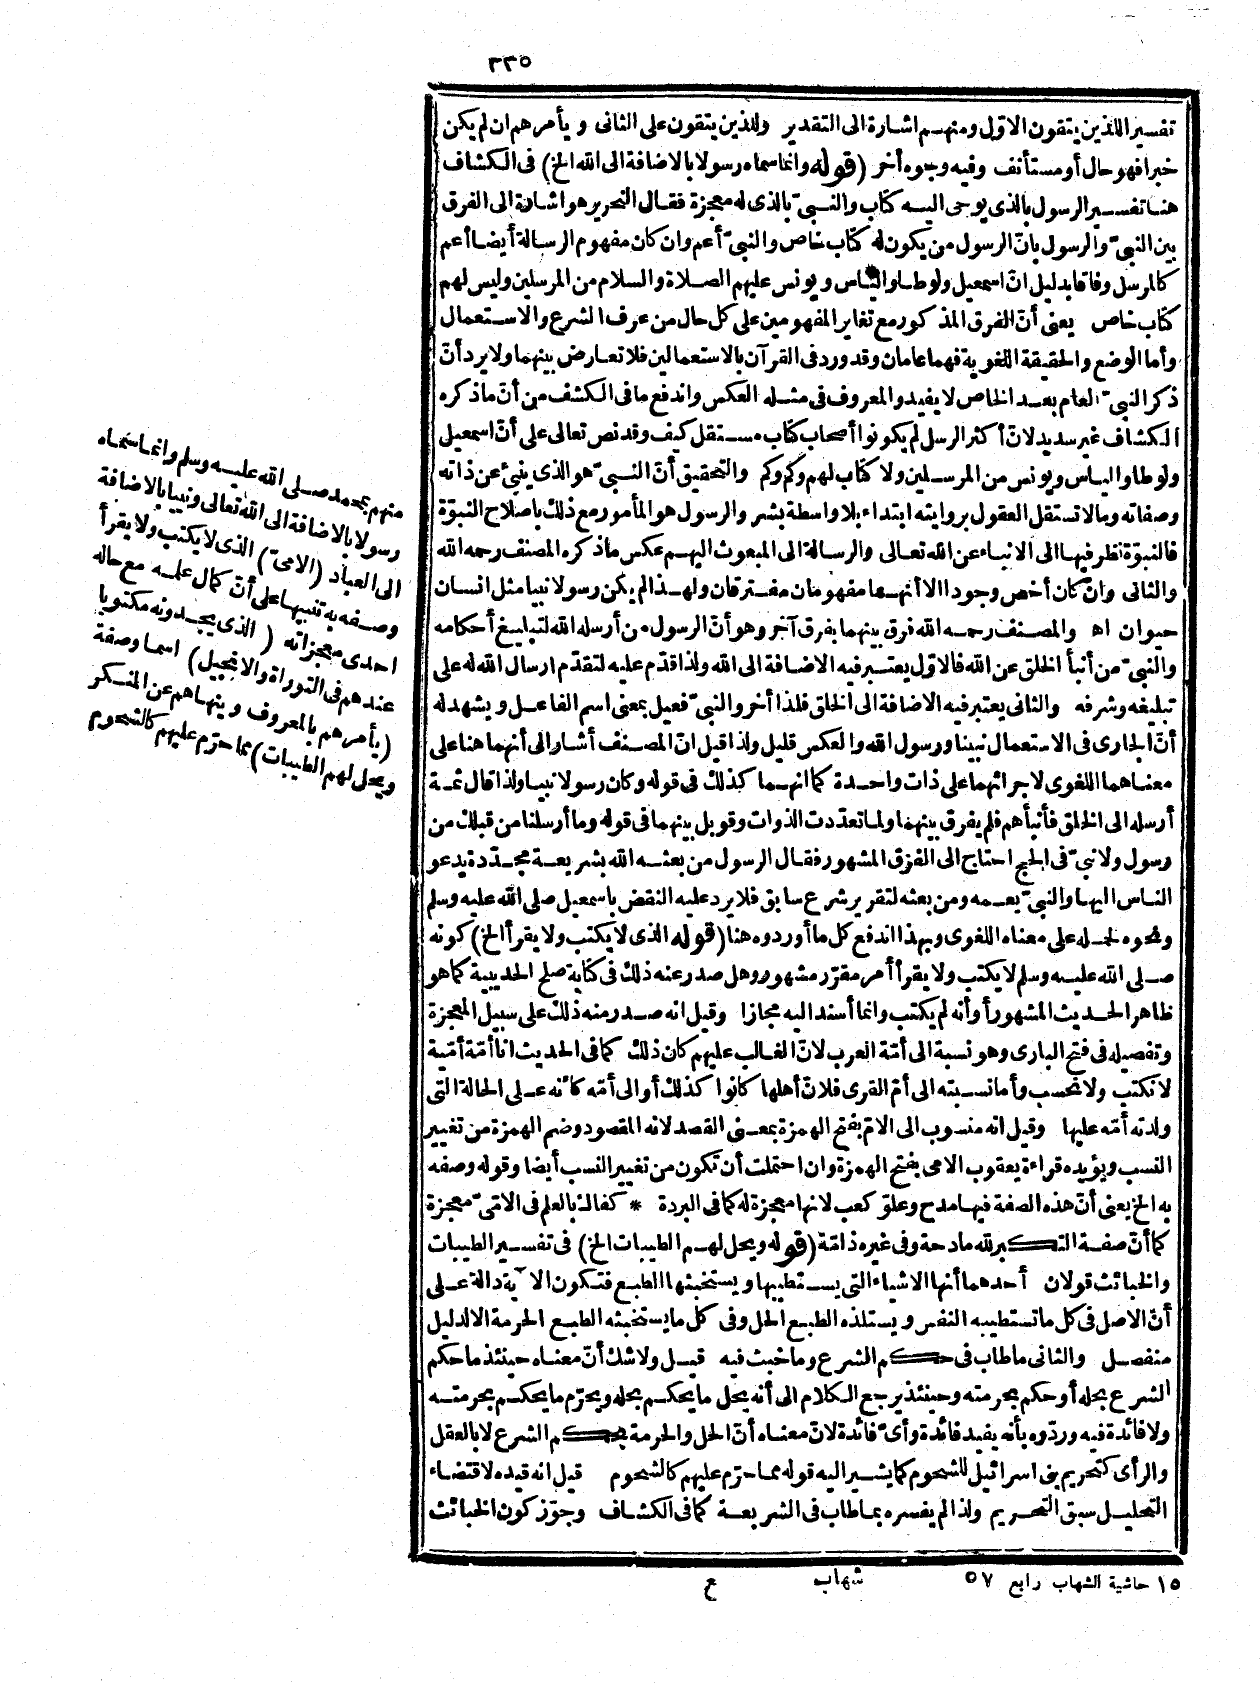 ٢٢٥
تفسير اللذين يتقون الاوّل ومنهم اشارة الى التقدير وللذين يتقون على الثانى و يأمرهم ان لم يكن
خبرا فهو حال أو مستأنف وفيه وجوه أخر (قوله وانما سماه رسولا بالاضافة الى الله الخ) فى الكشاف
هنا تفسير الرسول بالذى يوحى اليه كتاب والنبىّ بالذى له معجزة فقال النحرير هو اشارة الى الفرق
بين النبىّ والرسول بانّ الرسول من يكون له كتاب خاص والنبىّ أعم وان كان مفهوم الرسالة أيضا أعم
كالمرسل وفاقا بدليل انّ اسمعيل ولوطا والياس و يونس عليهم الصلاة والسلام من المرسلين وليس لهم
كتاب خاص يعنى أنّ الفرق المذكور مع تغاير المفهومين على كل حال من عرف الشرع والاستعمال
وأما الوضع والحقيقة اللغوية فهما عامان وقد ورد فى القرآن بالاستعمالين فلا تعارض بينهما ولا يرد أنّ
ذكر النبىّ العام بعد الخاص لا يفيد والمعروف فى مثله العكس واندفع ما فى الكشف من أنّ ما ذكره
الكشاف غير سديد لانّ أكثر الرسل لم يكونوا أصحاب كتاب مستقل كيف وقد نص تعالى على أنّ اسمعيل
ولوطا والياس ويونس من المرسلين ولا كتاب لهم وكم وكم والتحقيق أنّ النبىّ هو الذى ينبئ عن ذاته
وصفاته وما لا تستقل العقول بروايته ابتداء بلا واسطة بشر والرسول هو المأمور مع ذلك باصلاح النبوّة
فالنبوّة نظر فيها الى الانباء عن الله تعالى والرسالة الى المبعوث اليهم عكس ما ذكره المصنف رحمه الله
والثانى وان كان أخص وجودا الا أنهما مفهومان مفترقان ولهذا لم يكن رسولا نبيا مثل انسان
حيوان اه والمصنف رحمه الله فرق بينهما بفرق آخر وهو أنّ الرسول من أرسله الله لتبليغ أحكامه
والنبىّ من أنبأ الخلق عن الله فالاوّل يعتبر فيه الاضافة الى الله ولذا قدّم عليه لتقدّم ارسال الله له على
تبليغه وشرفه والثانى يعتبر فيه الاضافة الى الخلق فلذا أخر والنبىّ فعيل بمعنى اسم الفاعل و يشهد له
أنّ الجارى فى الاستعمال نبينا ورسول الله والعكس قليل ولذا قيل انّ المصنف أشار الى أنهما هنا على
معناهما اللغوى لاجرائهما على ذات واحدة كما انهما كذلك فى قوله وكان رسولا نبيا ولذا قال ثمة
أرسله الى الخلق فأنبأهم فلم يفرق بينهما ولما تعدّدت الذوات وقوبل بينهما فى قوله وما أرسلنا من قبلك من
رسول ولا نبىّ فى الحج احتاج الى الفرق المشهور فقال الرسول من بعثه الله بشريعة مجدّدة يدعو
الناس اليها والنبىّ يعمه ومن بعثه لتقرير شرع سابق فلا يرد عليه النقض باسمعيل صلى الله عليه وسلم
ونحوه لحمله على معناه اللغوى وبهذا اندفع كل ما أوردوه هنا (قوله الذى لا يكتب ولا يقرأ الخ) كونه
صلى الله عليه وسلم لا يكتب ولا يقرأ أمر مقرّر مشهور وهل صدر عنه ذلك فى كتابة صلح الحديبية كما هو
ظاهر الحديث المشهور أو أنه لم يكتب وانما أسند اليه مجازا وقيل انه صدر منه ذلك على سبيل المعجزة
وتفصيله فى فتح البارى وهو نسبة الى أمّة العرب لانّ الغالب عليهم كان ذلك كما فى الحديث انا أمّة أمّية
لا نكتب ولا نحسب وأما نسبته الى أمّ القرى فلانّ أهلها كانوا كذلك أو الى أمّه كأنه على الحالة التى
ولدته أمّه عليها وقيل انه منسوب الى الامّ بفتح الهمزة بمعنى القصد لانه المقصود وضم الهمزة من تغيير
النسب ويؤيده قراءة يعقوب الامى بفتح الهمزة وان احتملت أن تكون من تغيير النسب أيضا وقوله وصفه
به الخ يعنى أنّ هذه الصفة فيها مدح وعلوّ كعب لانها معجزة له كما فى البردة * كفاك بالعلم فى الامّىّ معجزة
كما أنّ صفة التكبر لله مادحة وفى غيره ذامّة (قوله ويحل لهم الطيبات الخ) فى تفسير الطيبات
والخبائث قولان أحدهما أنها الاشياء التى يستطيبها و يستخبثها الطبع فتكون الآية دالة على
أنّ الاصل فى كل ما تستطيبه النفس و يستلذه الطبع الحل وفى كل ما يستخبثه الطبع الحرمة الا لدليل
منفصل والثانى ما طاب فى حكم الشرع وما خبث فيه قيل ولا شك أنّ معناه حينئذ ما حكم
الشرع بحله أو حكم بحرمته وحينئذ يرجع الكلام الى أنه يحل ما يحكم بحله ويحرّم ما يحكم بحرمته
ولا فائدة فيه وردّوه بأنه يفيد فائدة وأىّ فائدة لانّ معناه أنّ الحل والحرمة بحكم الشرع لا بالعقل
والرأى كتحريم بنى اسرائيل للشحوم كما يشير اليه قوله مما حرّم عليهم كالشحوم قيل انه قيده لاقتضاء
التحليل سبق التحريم ولذا لم يفسره بما طاب فى الشريعة كما فى الكشاف وجوّز كون الخبائث
منهم بمحمد صلى الله عليه وسلم وانما سماه
رسولا بالاضافة الى الله تعالى ونبيا بالاضافة
الى العباد (الامىّ) الذى لا يكتب ولا يقرأ
وصفه به تنبيها على أنّ كمال علمه مع حاله
احدى معجزاته (الذى يجدونه مكتوبا
عندهم فى التوراة والانجيل) اسما وصفة
(يأمرهم بالمعروف وينهاهم عن المنكر
ويحل لهم الطيبات) مما حرّم عليهم كالشحوم
١٥ حاشية الشهاب رابع ٥٧ شهاب ع